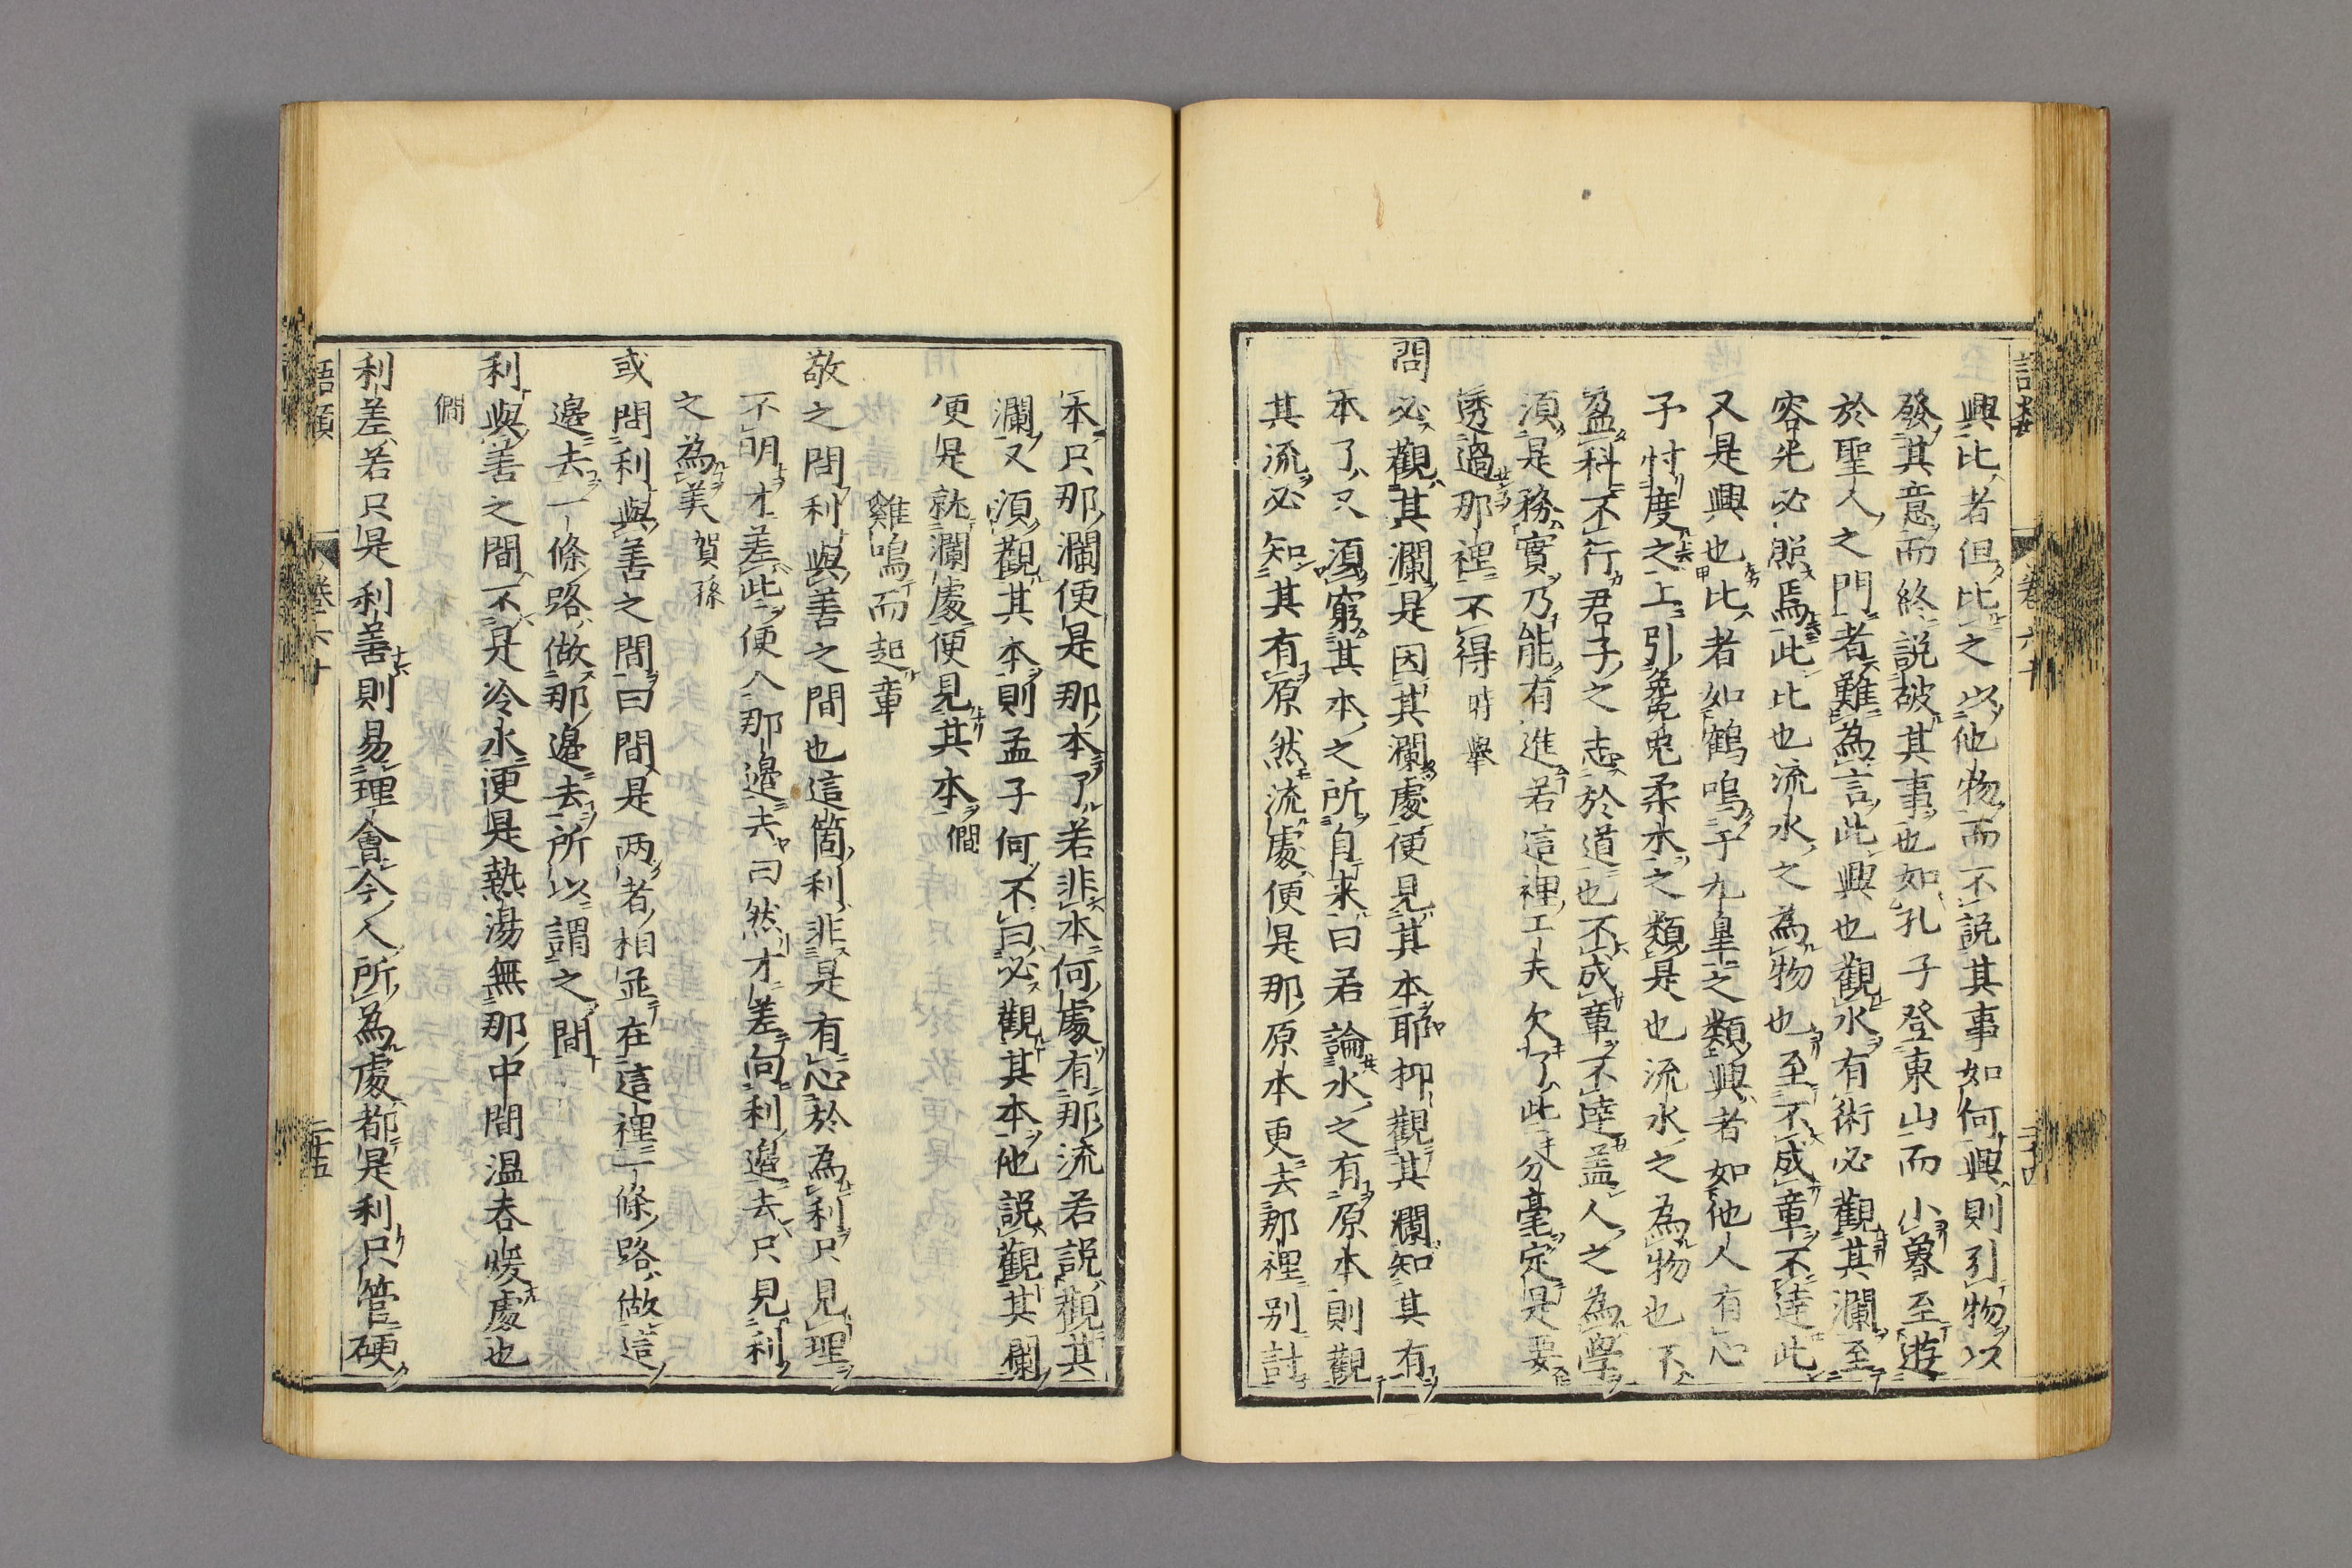 語類 卷六十 二十四
興比者但比之以他物而不説其事如何興則引物以
發其意而終説破其事也如孔子登東山而小魯至遊
於聖人之門者難為言此興也觀水有術必觀其瀾至
容光必照焉此比也流水之為物也至不成章不達此
又是興也比者如鶴鳴于九皐之類興者如他人有心
予忖度之上引毚兎柔木之類是也流水之為物也不
盈科不行君子之志於道也不成章不達蓋人之為學
須是務實乃能有進若這裡工夫欠了些分毫定是要
透過那裡不得時舉
問必觀其瀾是因其瀾處便見其本耶抑觀其瀾知其有
本了又須窮其本之所自来曰若論水之有原本則觀
其流必知其有原然流處便是那原本更去那裡别討
本只那瀾便是那本了若非本何處有那流若説觀其
瀾又須觀其本則孟子何不曰必觀其本他説觀其瀾
便是就瀾處便見其本僩
雞鳴而起章
敬之問利與善之間也這箇利非是有心於為利只見理
不明才差些便入那邉去曰然才差向利邉去只見利
之為美賀孫
或問利與善之間曰間是两者相並在這裡一條路做這
邉去一條路做那邉去所以謂之間
利與善之間不是冷水便是熱湯無那中間温吞煖處也
僩
利差若只是利善則易理會今人所為處都是利只管硬
語類 卷六十 二十五